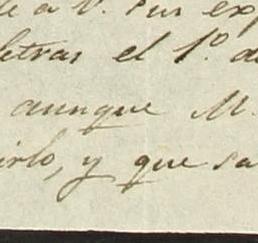 e a V. Sus exp
letras el 1º. d
aunque M.
irlo, y que sa